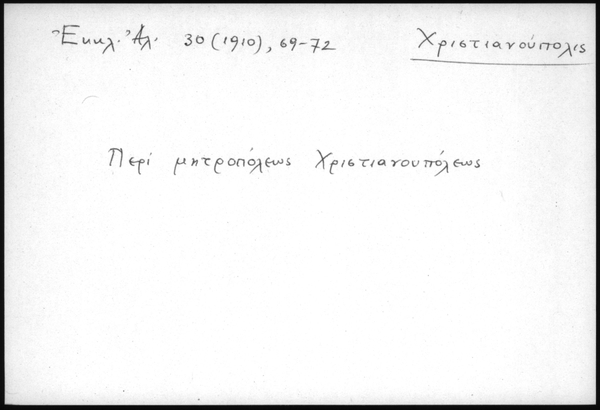 Ἐκκλ. Ἀλ. 30 (1910), 69-72 Χριστιανούπολις
Περί μητροπόλεως Χριστιανουπόλεως